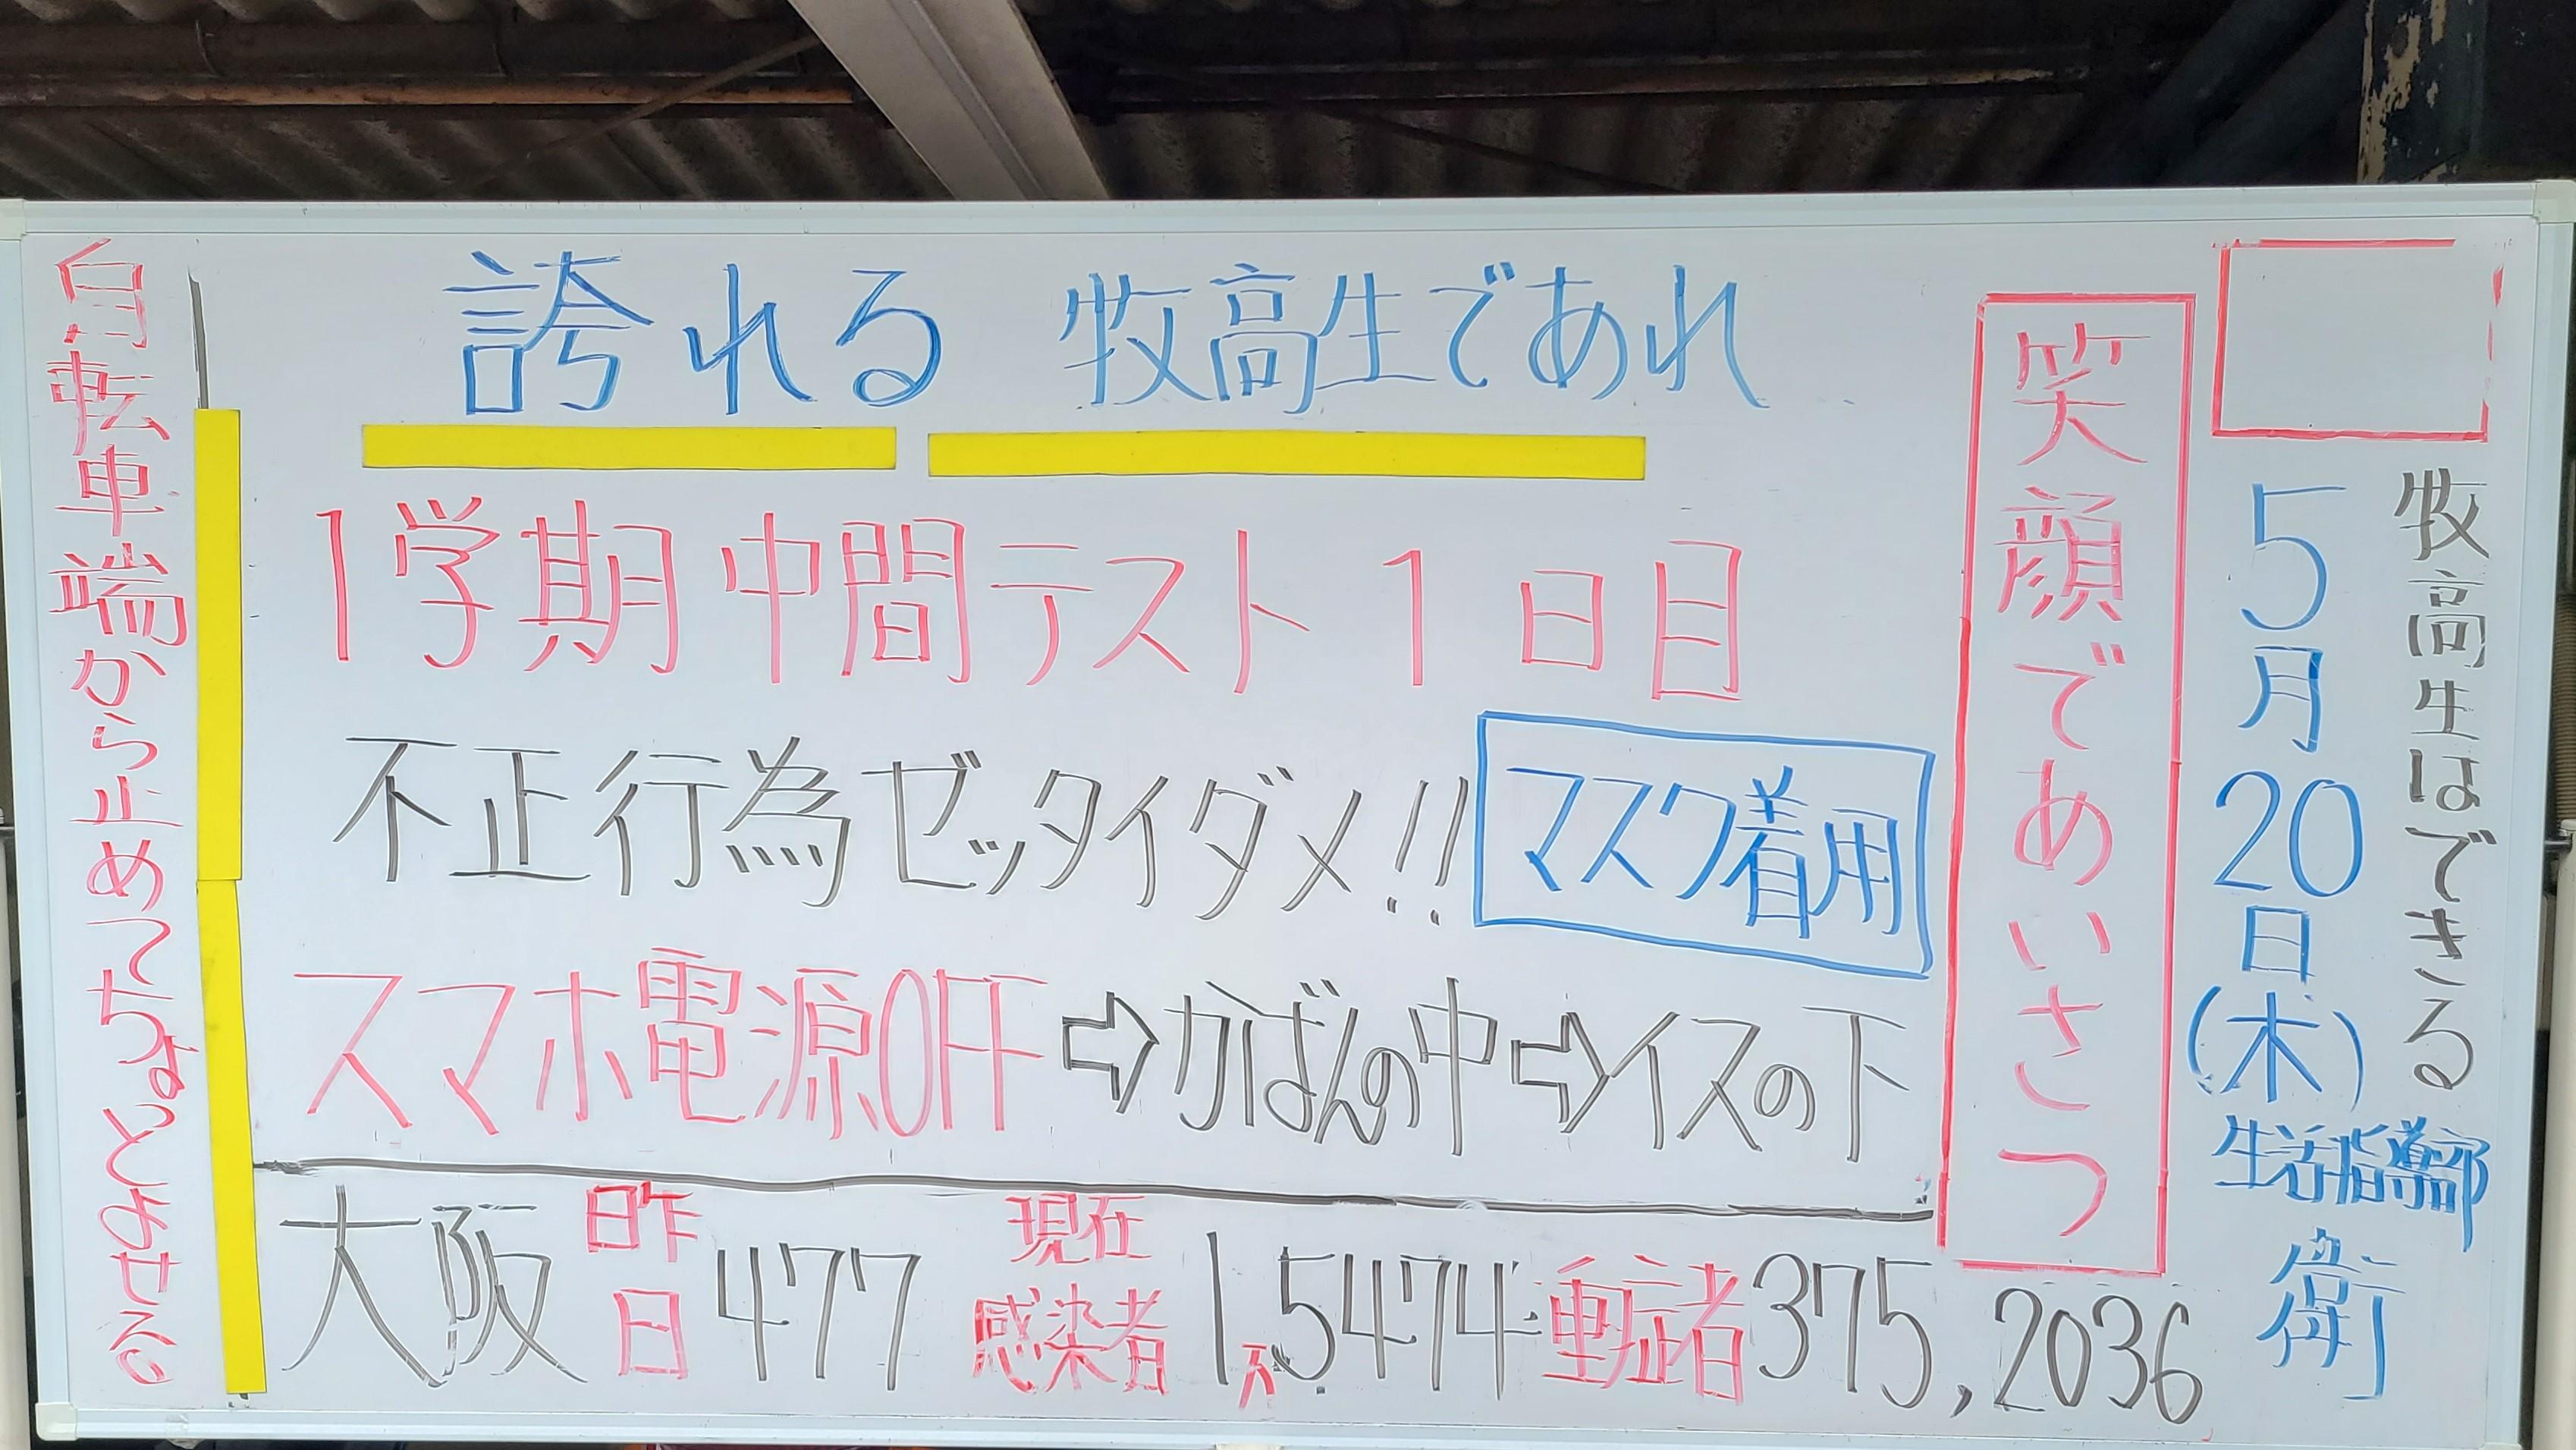 牧高生はできる
5月20日(木)
生活指導部
衛
笑顔であいさつ
誇れる 牧高生であれ
1学期中間テスト1日目
不正行為ゼッタイダメ!!
マスク着用
スマホ電源OFF⇨かばんの中⇨イスの下
大阪昨日477 現在感染者1万5474 重症者375,2036
自転車端から止めてちょっとみせる